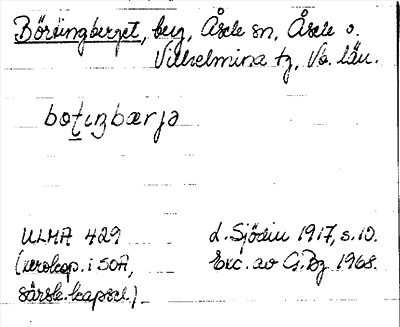 Börtingberget, berg, Åsele sn, Åsele o.
Vilhelmina tg, Vb. län.
botıŋbærjə
ULMA 429
(xerokop. i SOA,
särsk. kapsel)
d. Sjödin 1917, s. 10.
Exc. av G. Bg 1968.